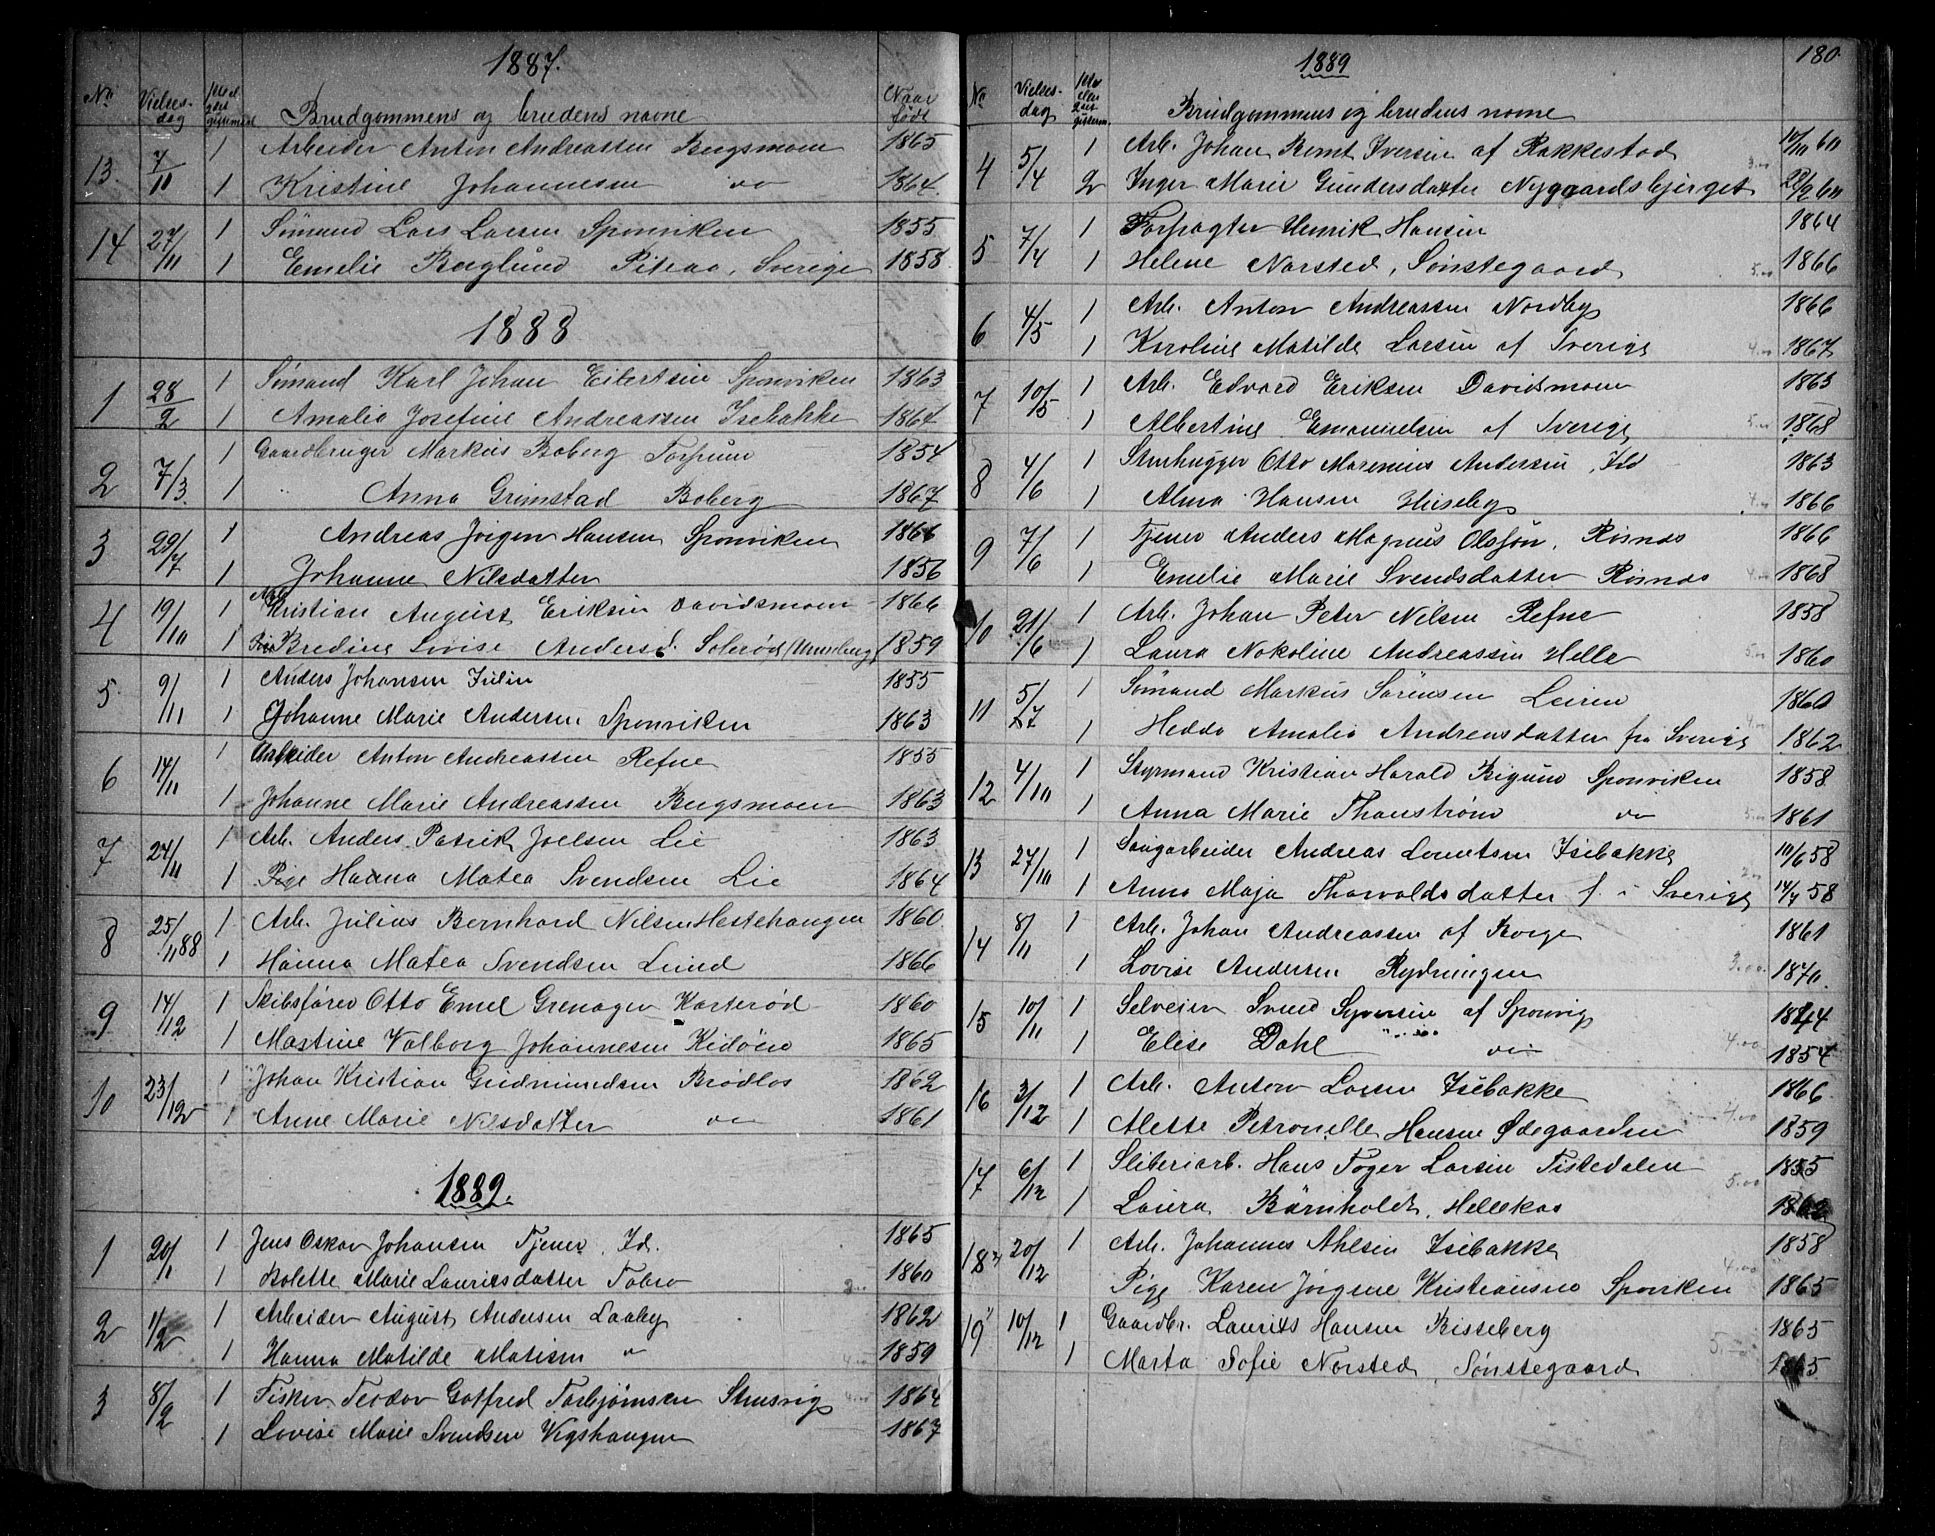 1887.
No Vielses- dag Brudgommens og brudens navne Naar født
13. 7/11 1 Arbeider Anton Andreassen Bergsmoen 1865
1 Kristine Johannesen do 1864.
14 27/11 1 Sømand Lars Larsen Sponviken 1855
1 Emelie Berglund Piteaa, Sverige 1858
1888
1 28/2 1 Sømand Karl Johan Eilertsen Sponviken 1863
1 Amalia Josefine Andreassen Isebakke 1864
2 7/3. 1 Gaardbruger Markus Boberg Torpum 1854
1 " Anna Grimstad Boberg 1867
3 29/7 1 Andreas Jørgen Hansen Sponviken 1866
1 Johanne Nilsdatter 1856
4 19/10 1 Arb. Kristian August Eriksen Davidsmoen 1866
1 Bredine Lovise Andersd. Solerød 1859
5. 9/11 1 Anders Johansen Julin 1855
1 Johanne Marie Andersen Sponviken 1863
6 14/11 1 Arbeider Anton Andreassen Refne 1855
1 Johanne Marie Andreassen Bergsmoen 1863
7 24/11 1 Arb. Anders Patrik Joelsen Lie 1863
1 Pige Hanna Matea Svendsen Lie 1864
8 25/11 88 1 Arb. Julius Bernhard Nilsen Hestehaugen 1860
1 Hanna Matea Svendsen Lund 1866
9 14/12 1 Skibsfører Otto Emel Grenager Korterød 1860
1 Mastine Valborg Johannesen Kidøen 1865
10 23/12 1 Johan Kristian Gudmundsen Brødløs 1862
1 Anne Marie Nilsdatter do 1861
1889.
1 20/1 1 Jens Oskar Johansen Tjener, Id. 1865
1 Bolette Marie Lauritsdatter Tobro 1860
2 1/2 1 Arbeider August Andersen Laaby 1862
1 Hanna Matilde Matisen " 1859
3 8/2 1 Fisker Teodor Gotfred Torbjørnsen Stusvig 1864
1 Lovise Marie Svendsen Vigshaugen 1867
1889 180.
No Vielses- dag Brudgommens og brudens navne
4 5/4 1 Arb. Johan Bernt Iversen af Rakkestad 10/10 60
2 Inger Marie Gundersdatter Nygaardsbjerget 60
5 7/4 1 Forpagter Henrik Hansen 1864
1 Helene Norsted, Sønstegaard 1866
6 4/5 1 Arb. Anton Andreassen Nordby 1866
1 Karoline Matilde Larsen af Sverige 1867
7 10/5 1 Arb. Edvard Eriksen Davidsmoen 1863
1 Albertine Emanuelsen af Sverige 1868
8 4/6 1 Stenhugger Otto Marenius Andersen, Id 1863
1 Alma Hansen Huseby 1866
9 7/6 1 Tjener Anders Magnus Olsson, Røsnes 1866
1 Emelie Marie Svendsdatter Røsnes 1868
10 21/6 1 Arb. Johan Peter Nilsen Refne 1858
1 Laura Nokoline Andreassen Helle 1860
11 5/7 1 Sømand Markus Sørensen Leiren 1860
1 Hedda Amalia Andreasdatter fra Sverige 1862
12 4/10 1 Styrmand Kristian Harald Bigum Sponviken 1858
1 Anna Marie Thanstrøm do 1861
13 27/10 1 Saugarbeider Andreas Lorentsen Isebakke 10/6 58
1 Anna Maja Thorvaldsdatter f. i Sverige 14/7 58
14 8/11 1 Arb. Johan Andreassen af Borge 1861
1 Lovise Andersen Rydningen 1870.
15 10/11 1 Selveier Svend Syversen af Sponvig 1844
1 Elise Dahl do 1854
16 3/12 1 Arb. Anton Larsen Isebakke 1866
1 Alette Petronelle Hansen Ødegaarden 1859
17 6/12 1 Sliberiarb. Hans Foger Larsen Tistedalen 1855
1 Laura Børnholdt, Hellekas
18 20/12 1 Arb. Johannes Ahlsen Isebakke 1858
Pige Karen Jørgine Kristiansen Sponviken 1865
19 10/12 1 Gaardbr. Laurits Hansen Bisseberg 1865
1 Marta Sofie Norsted, Sønstegaard 1865